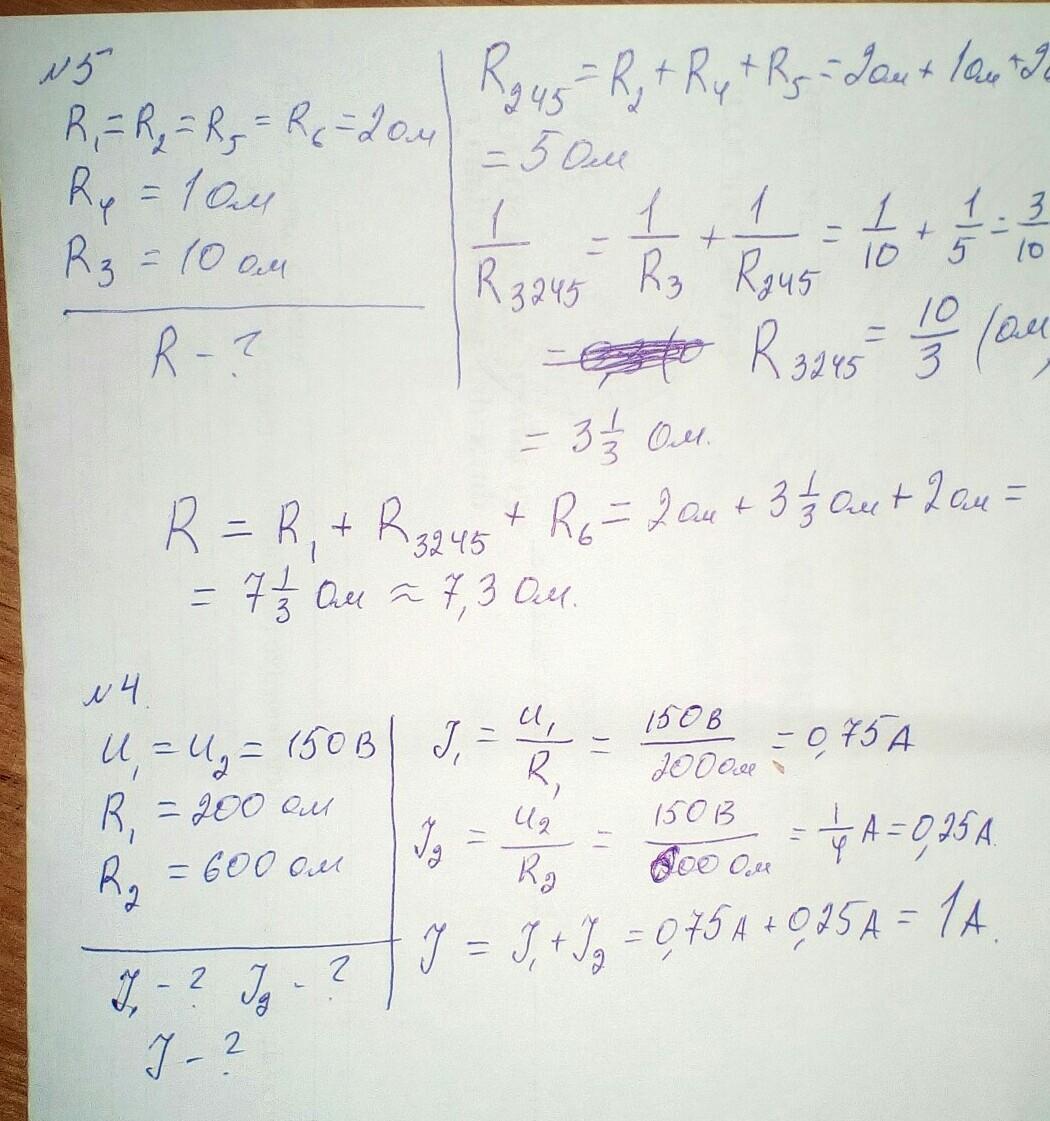 №5
R₁ = R₂ = R₅ = R₆ = 2 ом
R₄ = 1 Ом
R₃ = 10 ом
R - ?
R₂₄₅ = R₂ + R₄ + R₅ = 2 ом + 1 ом + 2
= 5 Ом
1/R₃₂₄₅ = 1/R₃ + 1/R₂₄₅ = 1/10 + 1/5 = 3/10
= R₃₂₄₅ = 10/3 (ом)
= 3 1/3 Ом.
R = R₁ + R₃₂₄₅ + R₆ = 2 ом + 3 1/3 Ом + 2 ом =
= 7 1/3 Ом ≈ 7,3 Ом.
№4.
U₁ = U₂ = 150 В
R₁ = 200 ом
R₂ = 600 ом
J₁ - ? J₂ - ?
J - ?
J₁ = U₁/R₁ = 150 В/200 ом = 0,75 А
J₂ = U₂/R₂ = 150 В/600 Ом = 1/4 А = 0,25 А.
J = J₁ + J₂ = 0,75 А + 0,25 А = 1 А.